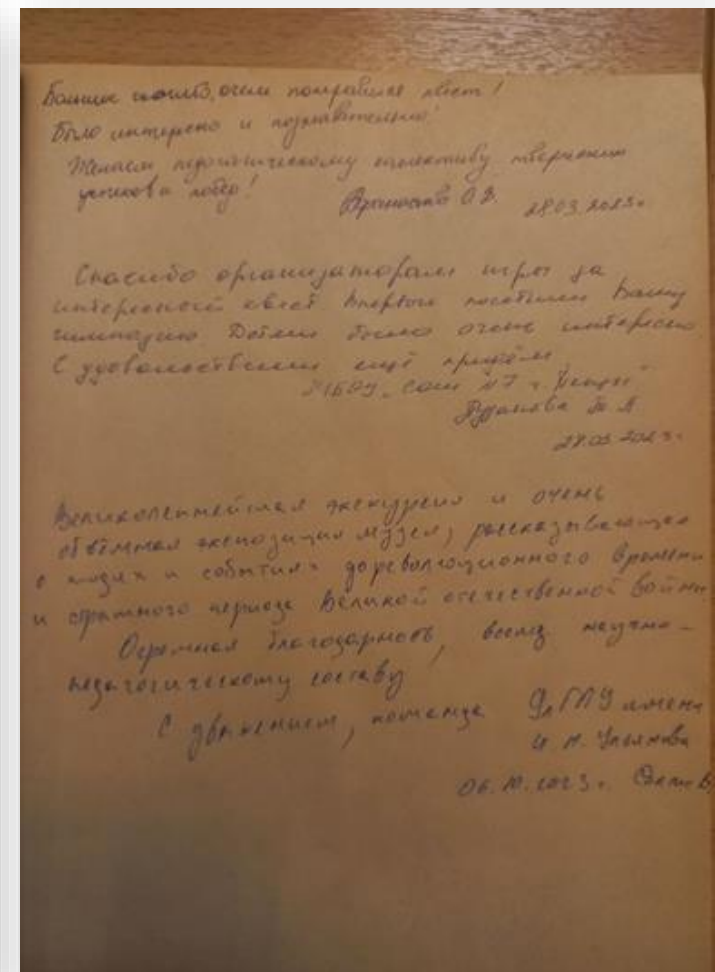 Большое спасибо, очень понравился квест!
Было интересно и познавательно!
Желаем педагогическому коллективу творческих
успехов и побед!
О.В. 28.03.2023г.
Спасибо организаторам игры за
интересный квест. Впервые посетили Вашу
гимназию Детям было очень интересно.
С удовольствием ещё придём.
МБОУ "СОШ №7 г.
28.03.2023г.
Великолепнейшая экскурсия и очень
объёмная экспозиция музея, рассказывающая
о людях и событиях дореволюционного времени
и страшного периода Великой отечественной войны.
Огромная благодарность, всему научно-
педагогическому составу
С уважением, команда УлГПУ имени
И. Н. Ульянова
06.10.2023г.